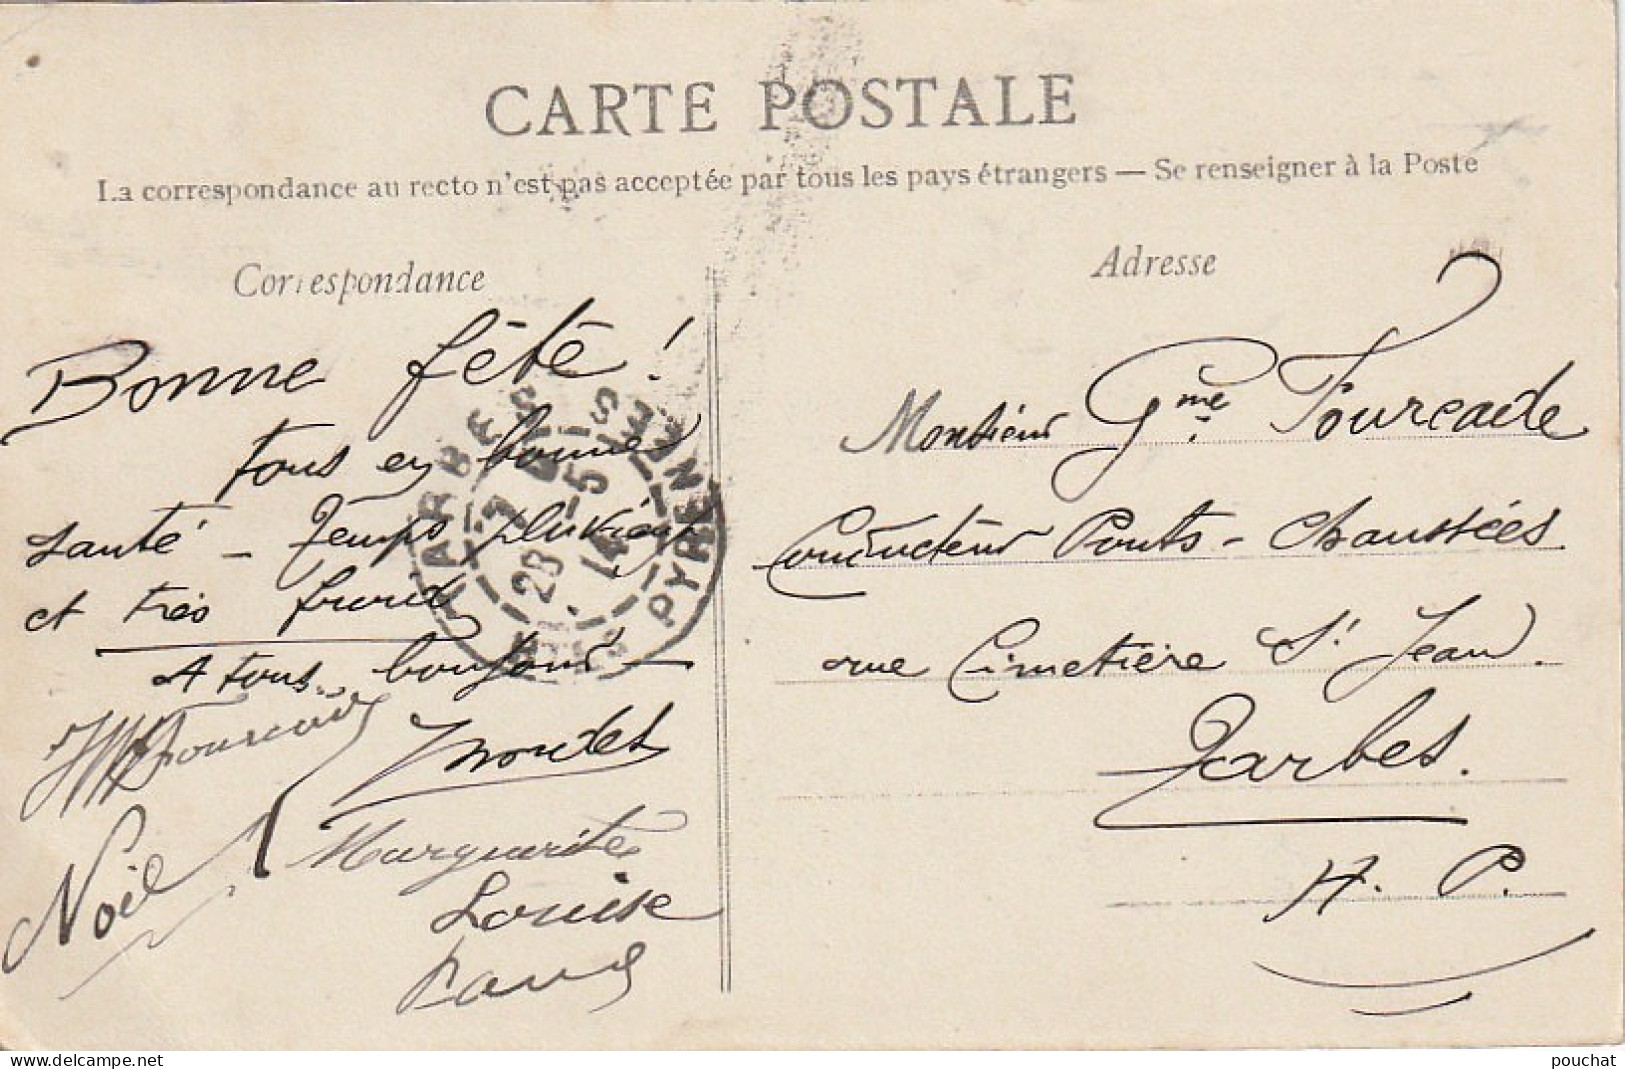 CARTE POSTALE
La correspondance au recto n'est pas acceptée par tous les pays étrangers — Se renseigner à la Poste
Correspondance
Adresse
Bonne fête !
tous en bonne
santé – Temps pluvieux
et très froid
A tous bonjour –
Fourcade
Marguerite
Noël
Louise
Monsieur Gme. Fourcade
Conducteur Ponts - Chaussées
rue Cimetière St Jean.
Tarbes.
H. P.
TARBES
28 - 5
14
HTES PYRENEES
www.delcampe.net
pouchat